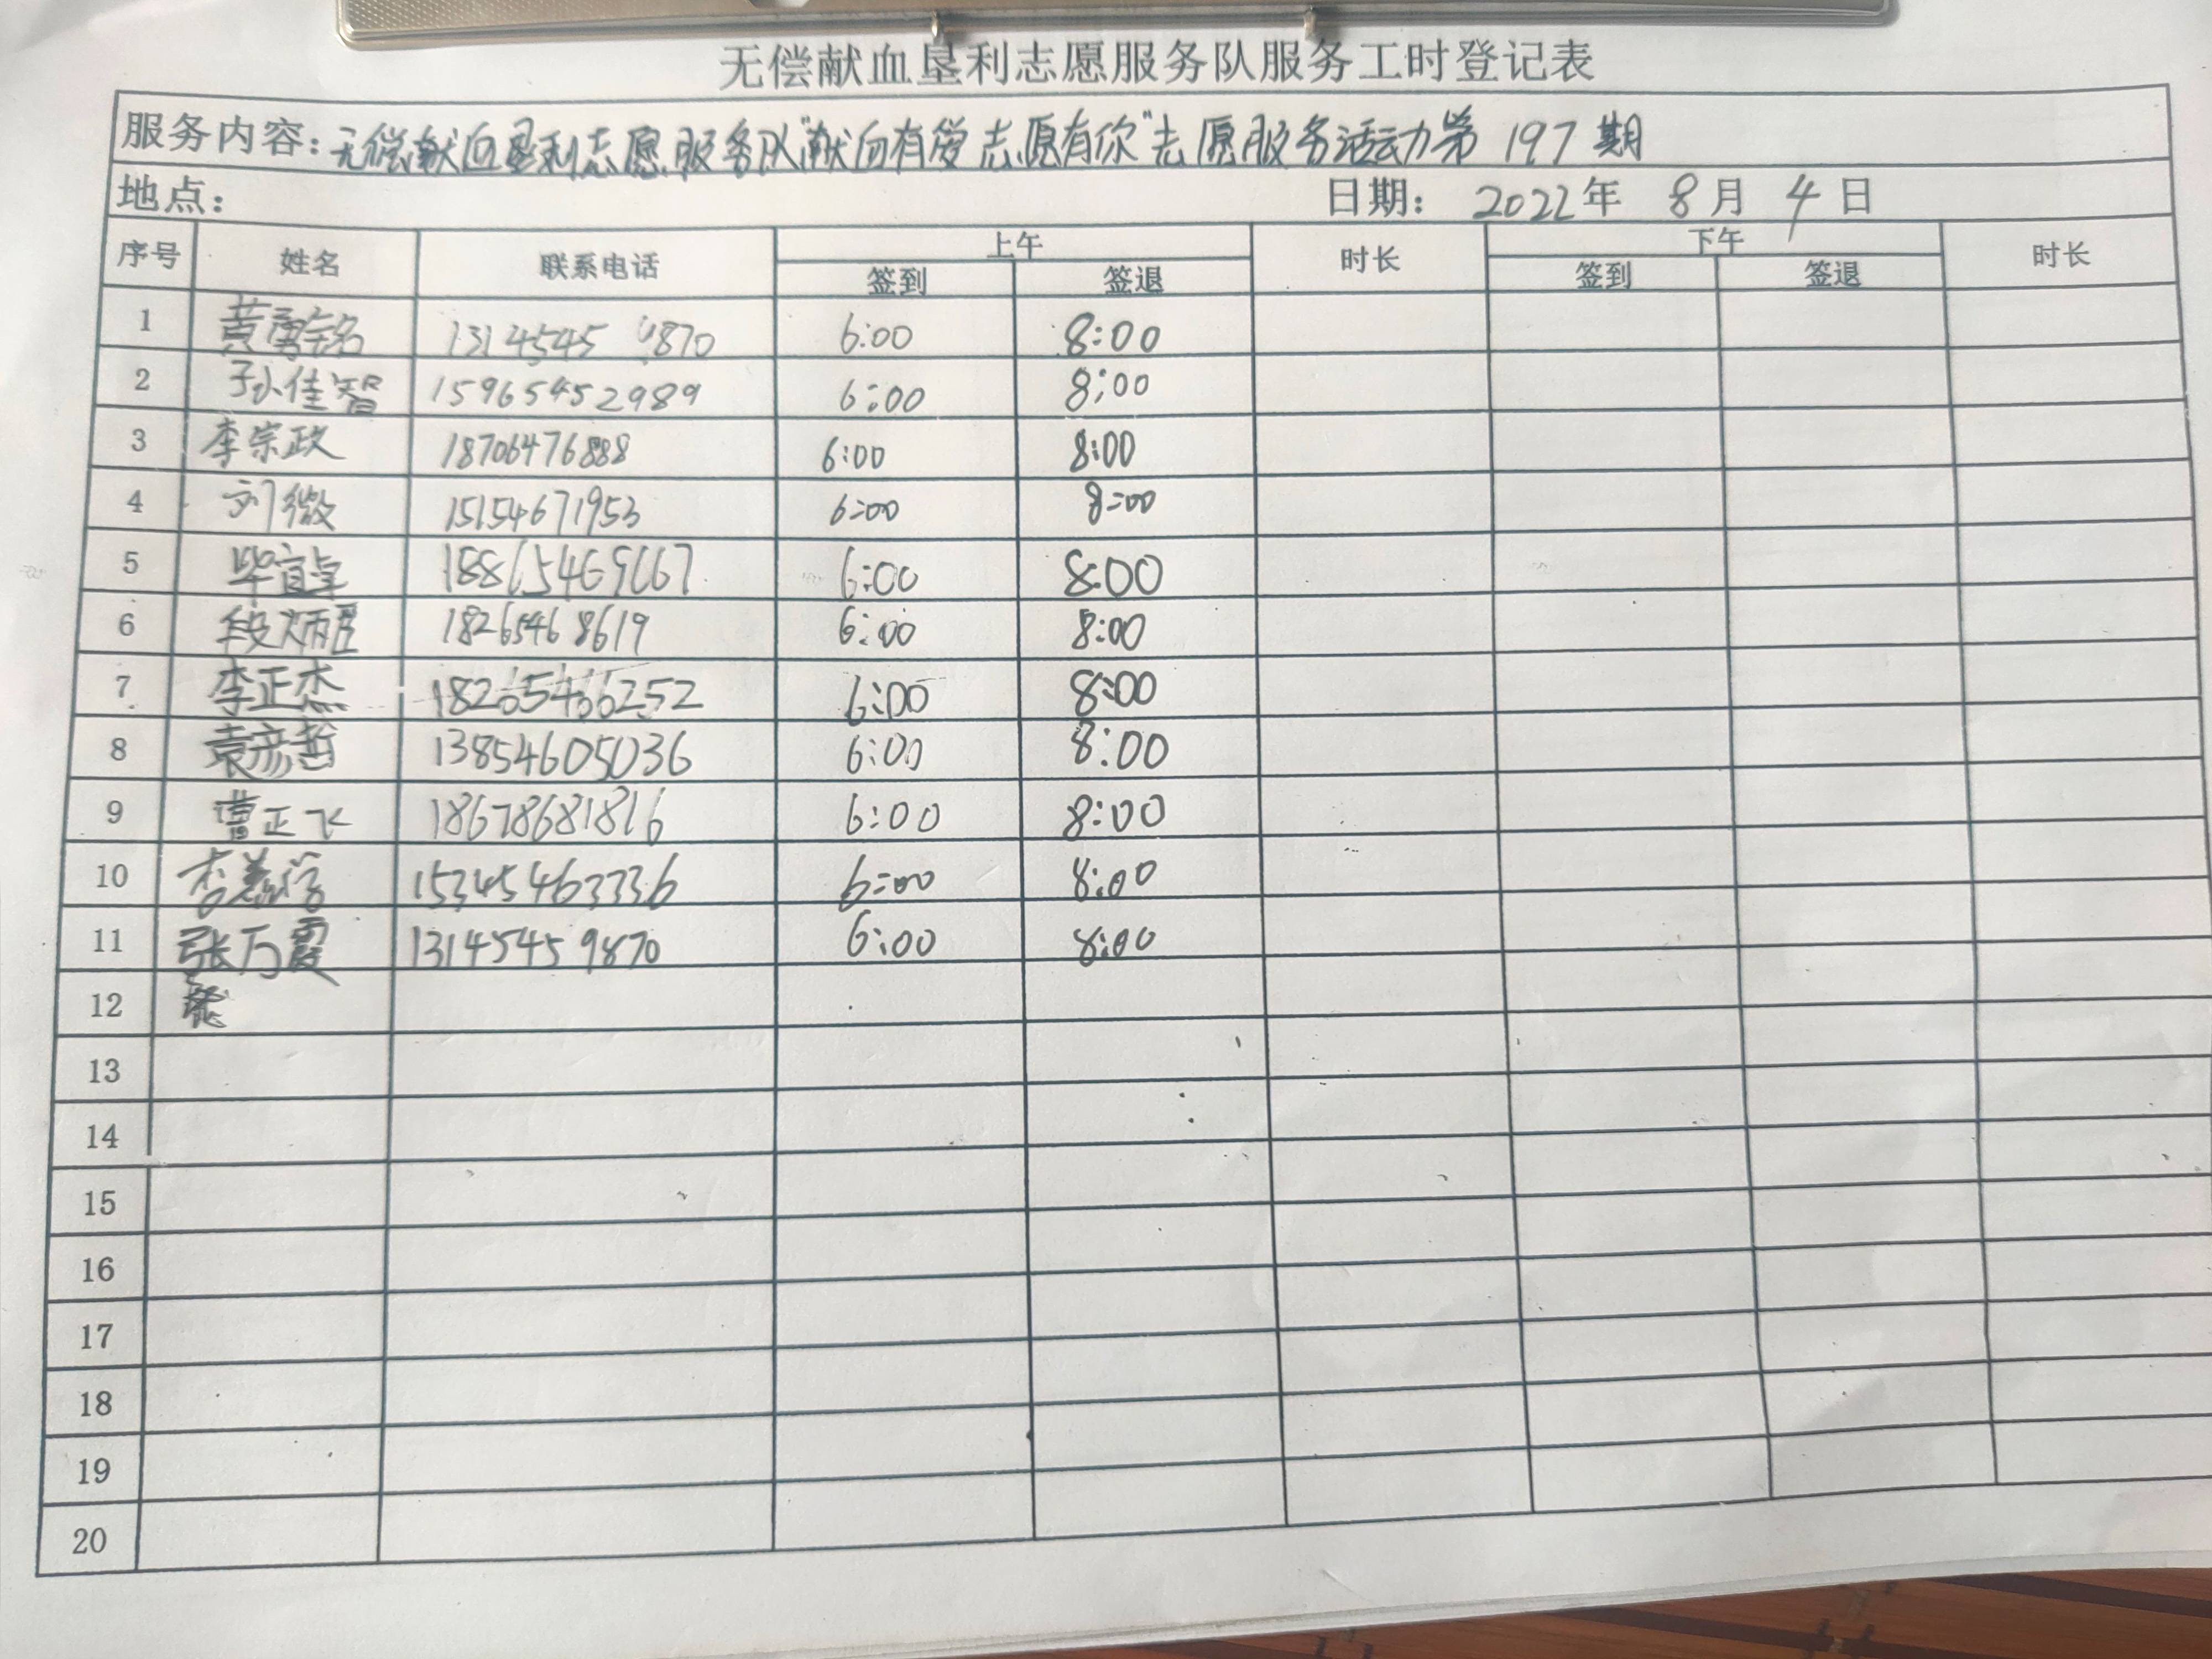 无偿献血垦利志愿服务队服务工时登记表
服务内容：无偿献血垦利志愿服务队"献血有爱 志愿有你"志愿服务活动第 197 期
地点： 日期： 2022年 8月 4日
序号 姓名 联系电话 上午 时长 下午 时长
签到 签退 签到 签退
1 1314545 9870 6:00 8:00
2 孙佳智 15965452989 6:00 8:00
3 李宗政 18706476888 6:00 8:00
4 刘微 15154671953 6:00 8:00
5 毕宜卓 18865469667 6:00 8:00
6 段炳 18265468619 6:00 8:00
7 李正杰 18265466252 6:00 8:00
8 袁彦哲 13854605036 6:00 8:00
9 曹正飞 18678681816 6:00 8:00
10 李 15345463336 6:00 8:00
11 张万霞 13145459870 6:00 8:00
12
13
14
15
16
17
18
19
20